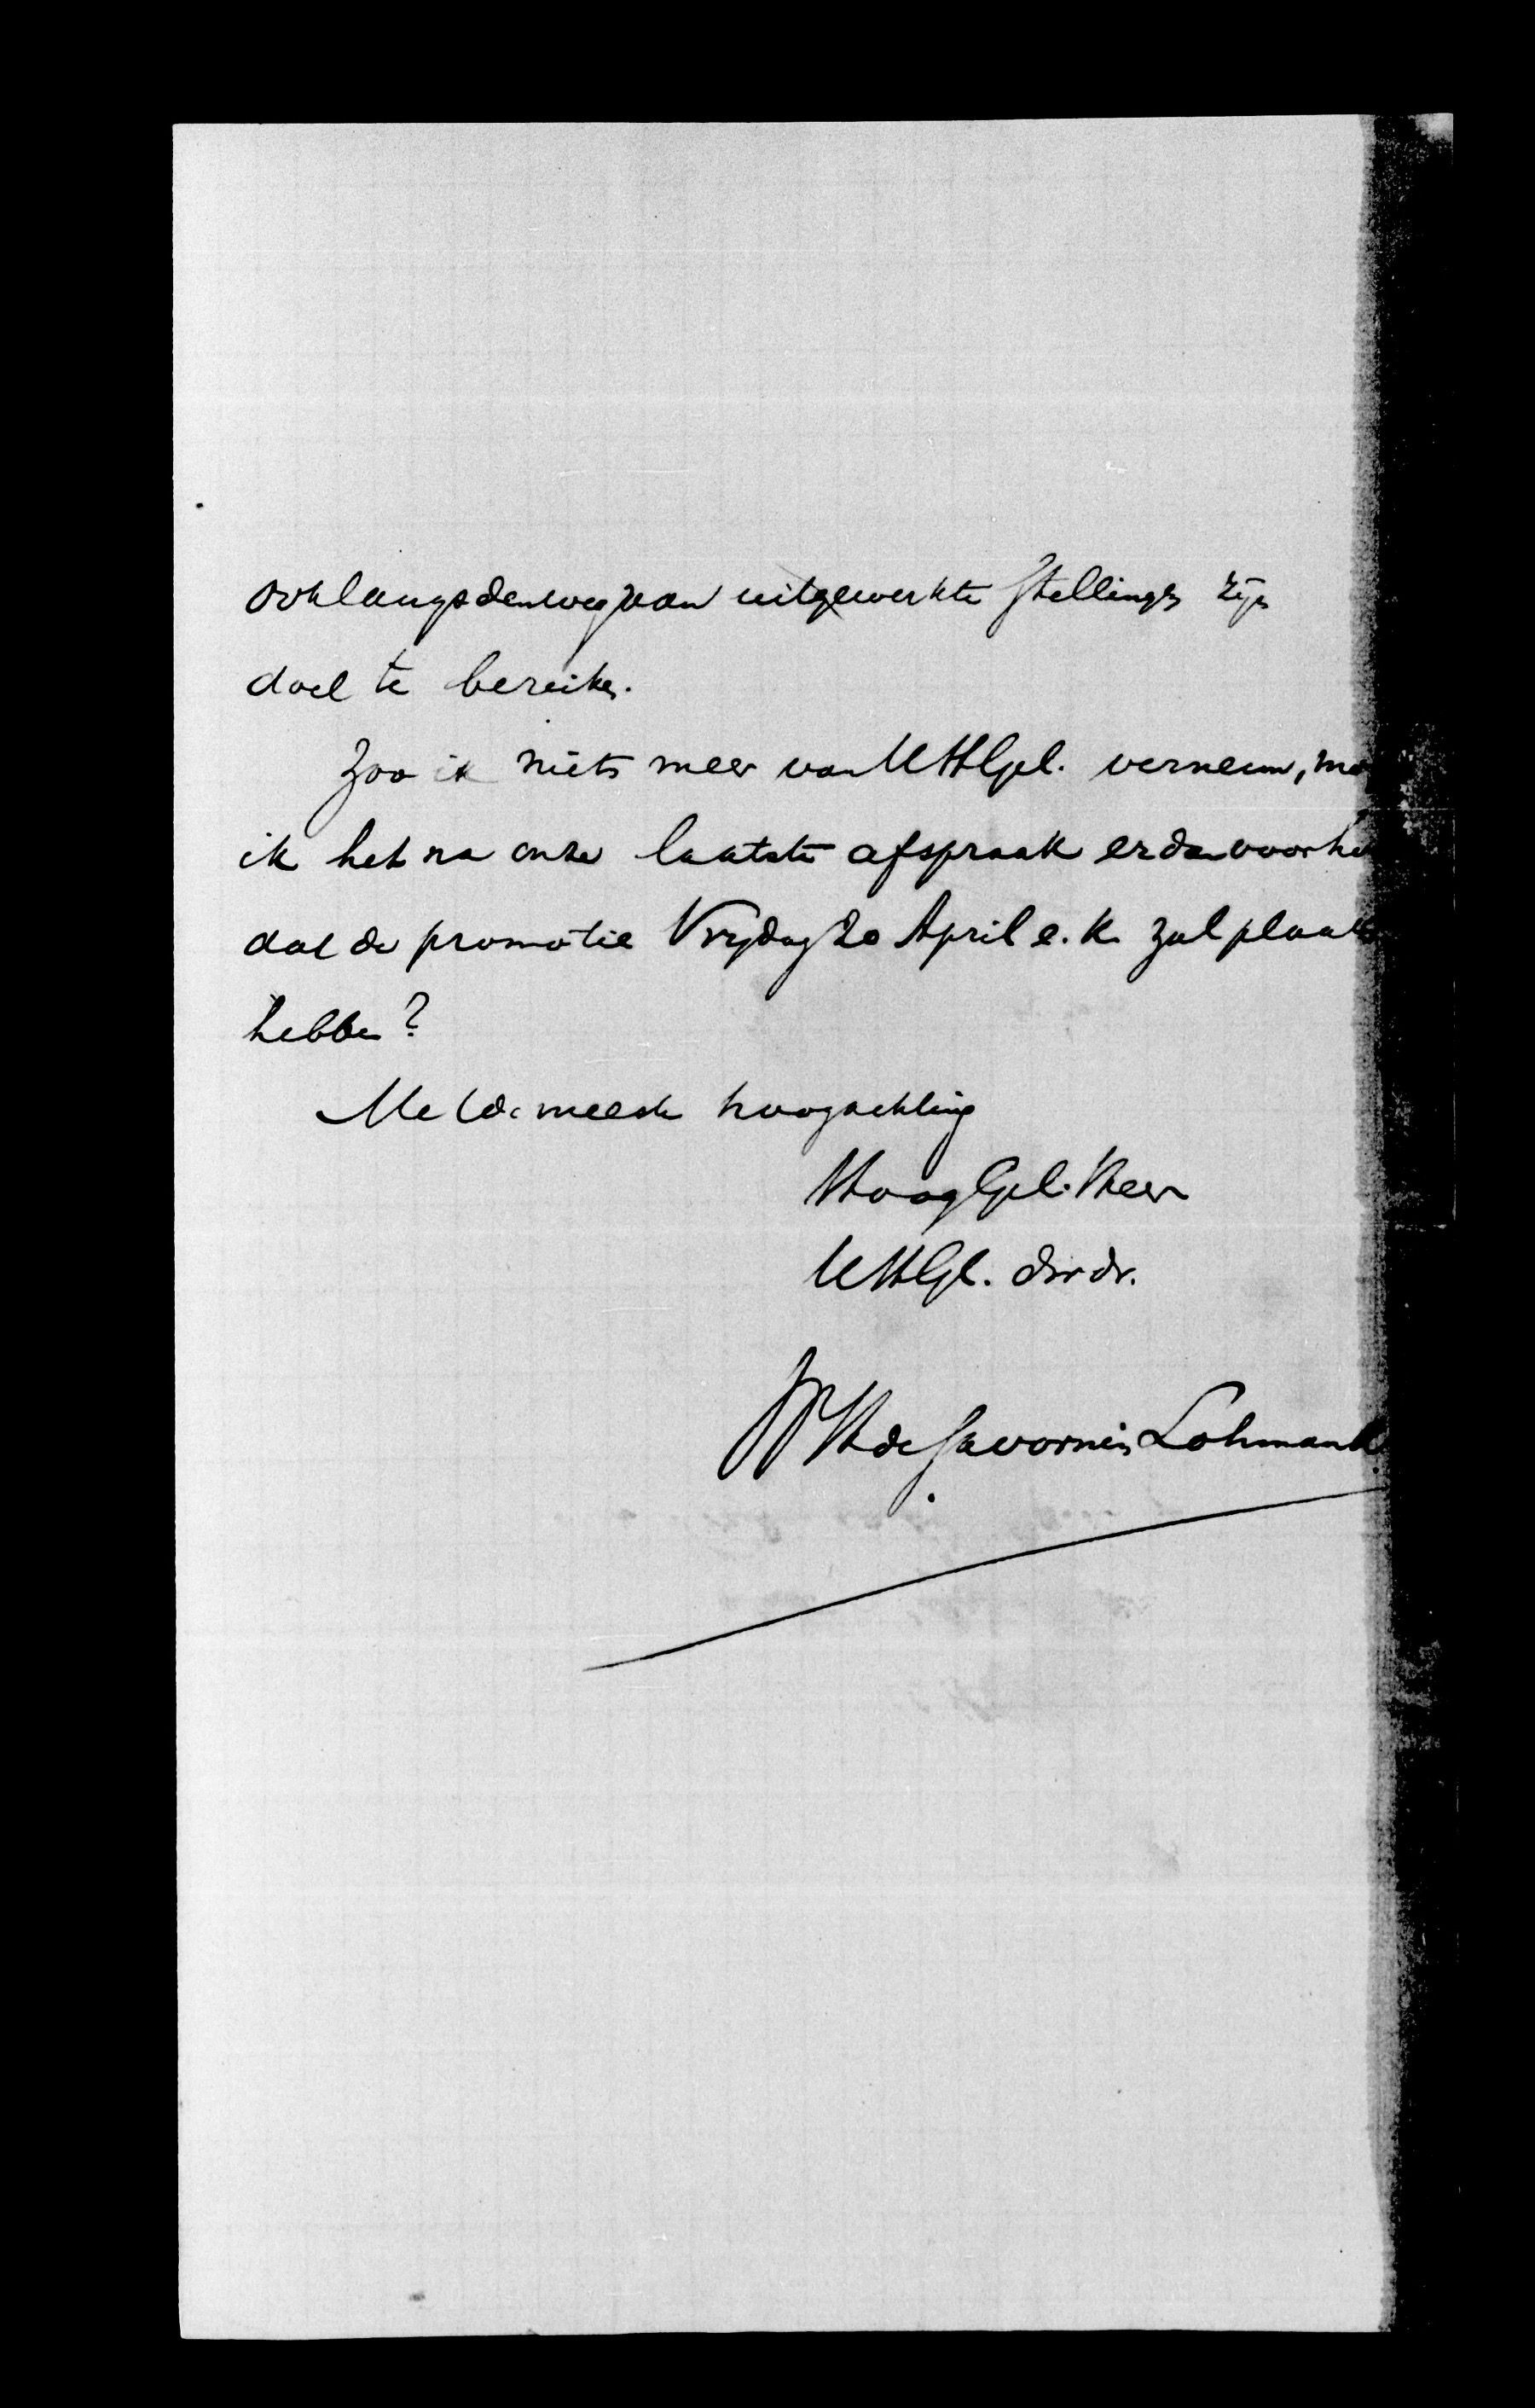 ook langs den weg van uitgewerkte stellingen zijn
doel te bereiken.
Zoo ik niets meer van UHGel. verneem, mo
ik het na onze laatste afspraak er dan voor ho
dat de promotie Vrijdag 20 April e.k. zal plaats
hebben?
Met de meeste hoogachting
HoogGel. Heer
UHGel. dw dr.
de Savornin Lohman